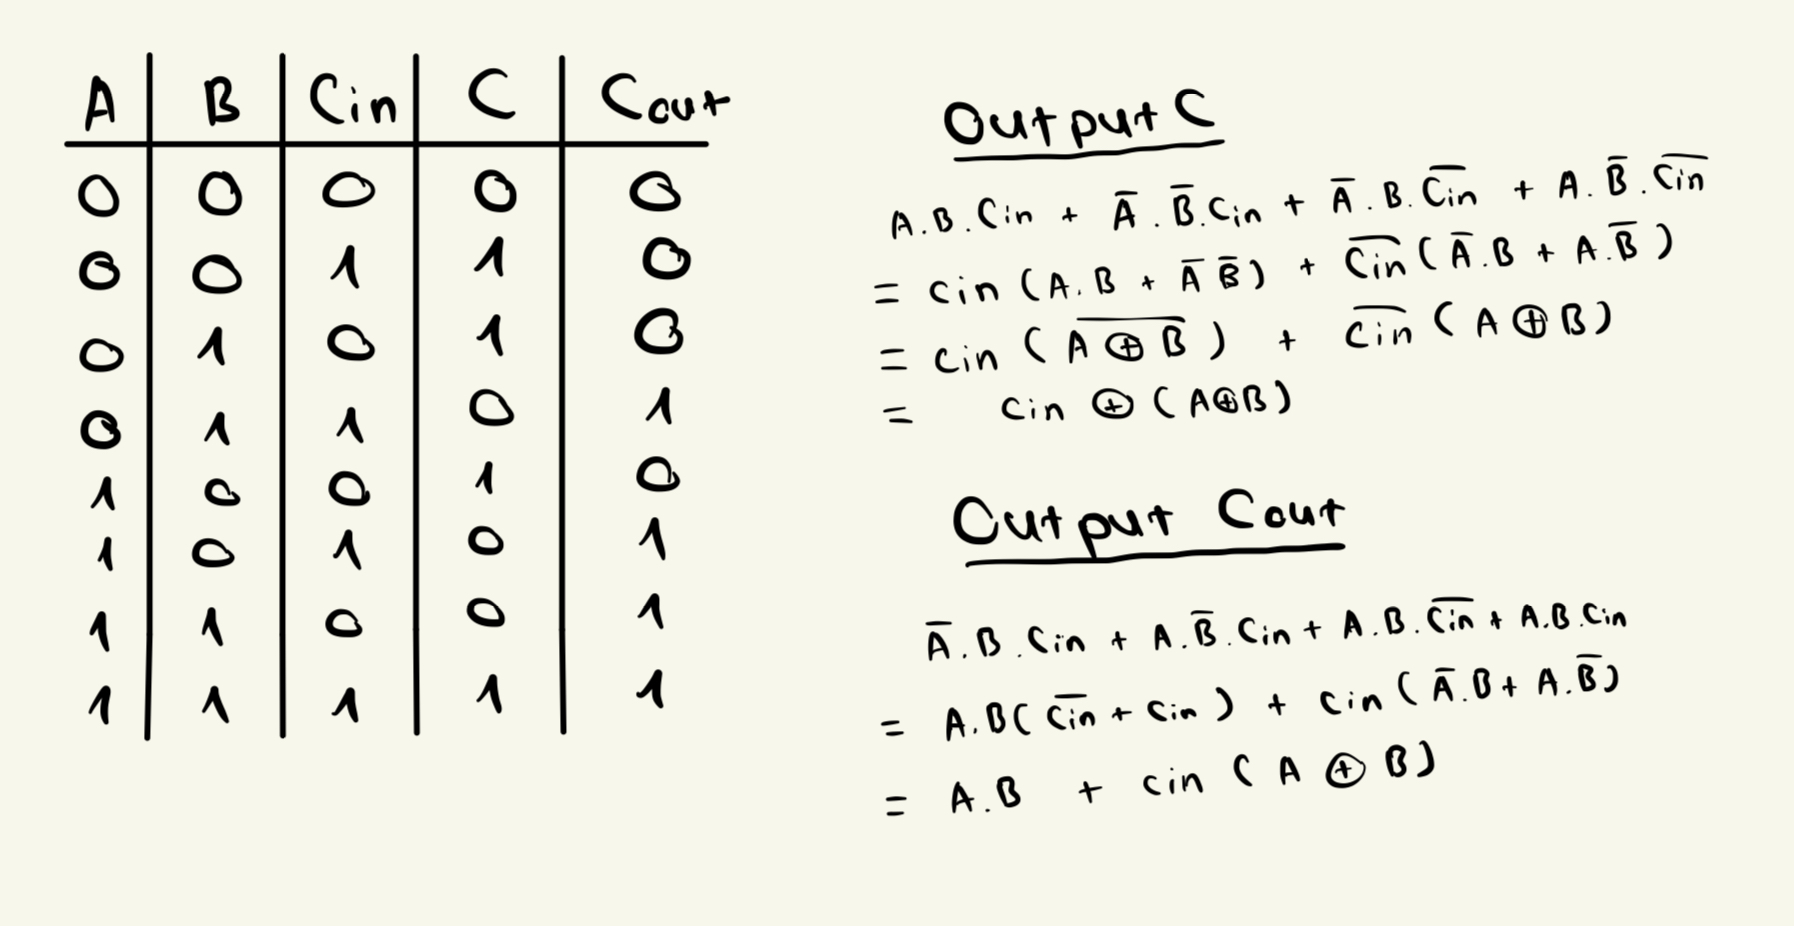 A B Cin C Cout
0 0 0 0 0
0 0 1 1 0
0 1 0 1 0
0 1 1 0 1
1 0 0 1 0
1 0 1 0 1
1 1 0 0 1
1 1 1 1 1
Output C
A.B.Cin + A̅.B̅.Cin + A̅.B.C̅i̅n̅ + A.B̅.C̅i̅n̅
= Cin (A.B + A̅ B̅) + C̅i̅n̅ (A̅.B + A.B̅)
= Cin (A̅ ̅⊕̅ ̅B̅) + C̅i̅n̅ (A ⊕ B)
= Cin ⊕ (A⊕B)
Output Cout
A̅.B.Cin + A.B̅.Cin + A.B.C̅i̅n̅ + A.B.Cin
= A.B(C̅i̅n̅ + Cin) + Cin (A̅.B + A.B̅)
= A.B + Cin (A ⊕ B)